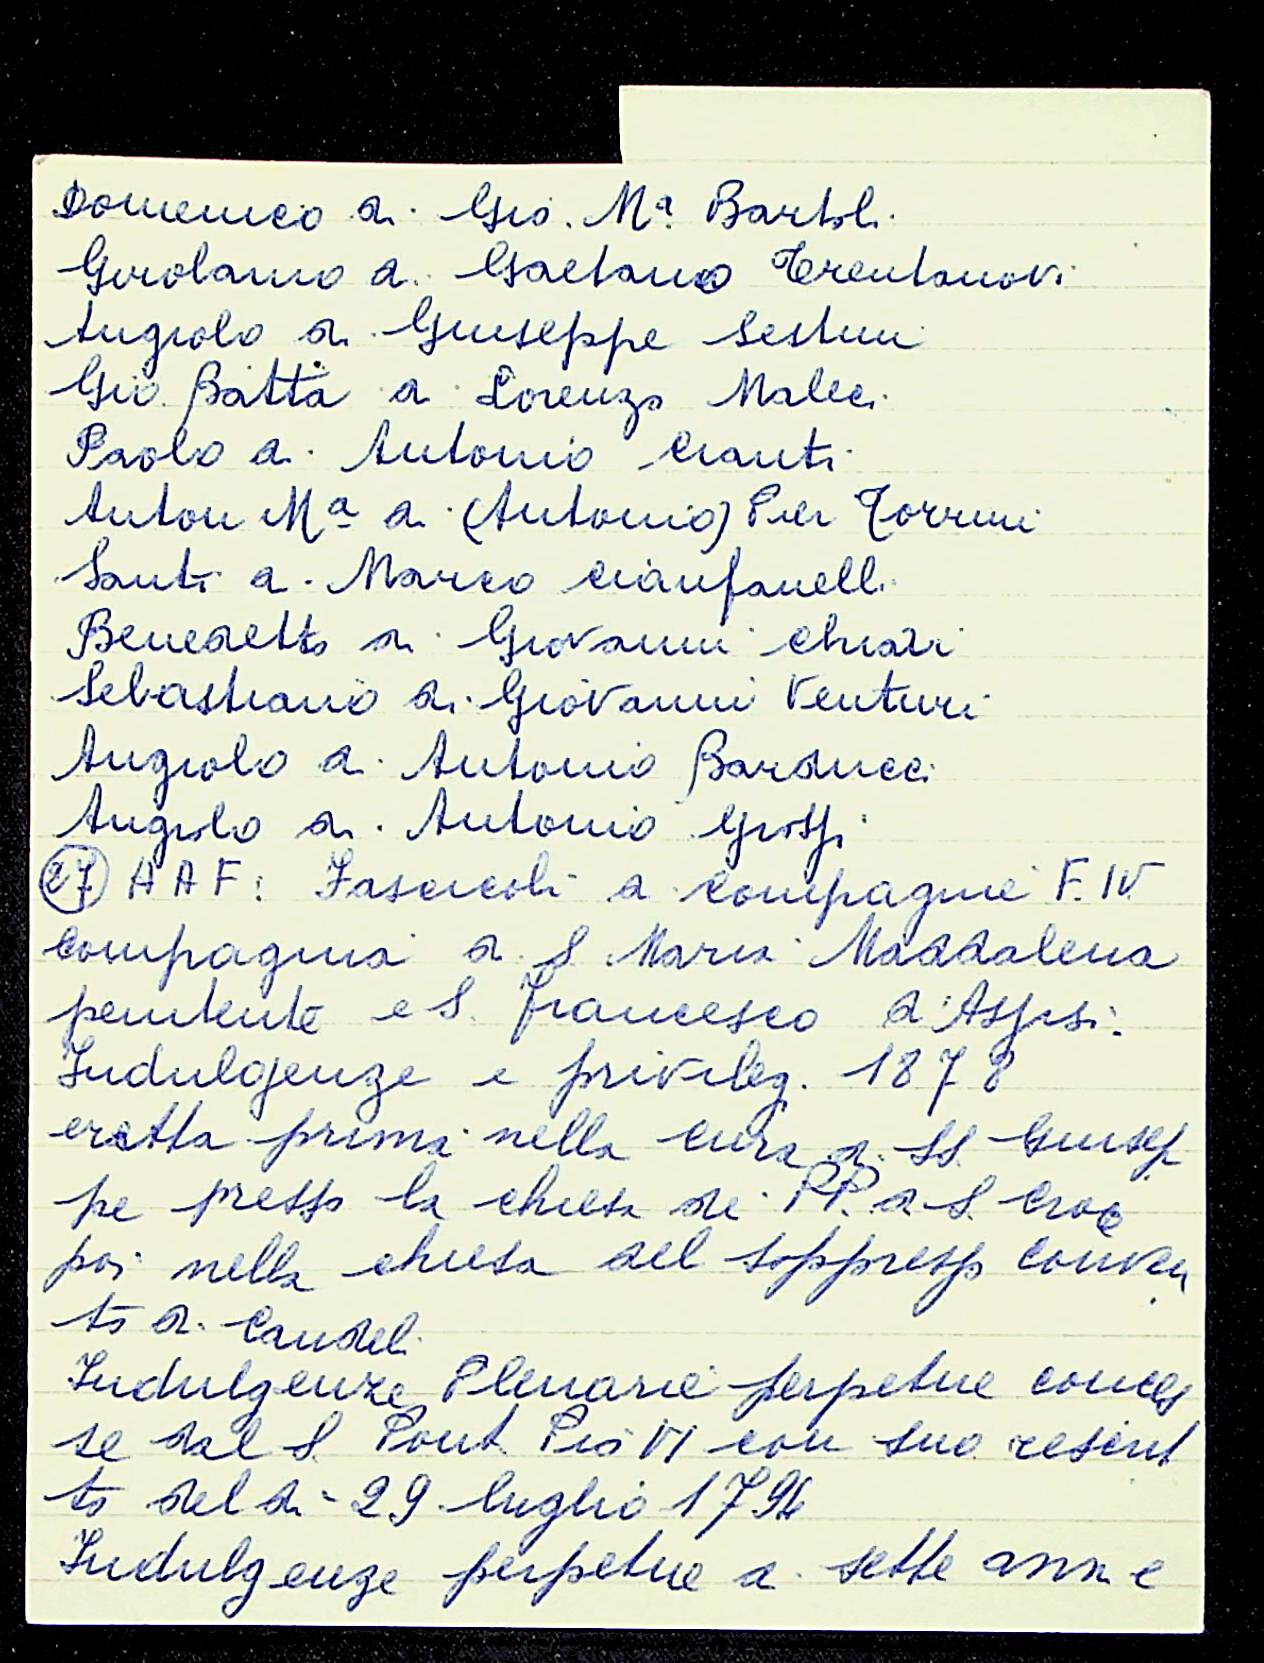 Domenico di Gio. Mª Bartoli
Girolamo di Gaetano Trentanovi
Angiolo di Giuseppe Sestini
Gio Batta di Lorenzo Maleci
Paolo di Antonio Cianti
Anton Mª di (Antonio) Pier Torrini
Santi di Marco Cianfanelli
Benedetto di Giovanni Chiari
Sebastiano di Giovanni Venturi
Angiolo di Antonio Barducci
Angiolo di Antonio Grossi
27 AAF: Fascicoli di compagnie F. IV
Compagnia di S Maria Maddalena
penitente e S. Francesco d'Assisi.
Indulgenze e privileg. 1878
eretta prima nella cura di SS. Giusep
pe presso la chiesa dei PP. di S. Croce
poi nella chiesa del soppresso conven
to di Candeli
Indulgenze Plenarie perpetue conces
se dal S. Pont. Pio VI con suo rescrit
to del di 29 luglio 1794
Indulgenze perpetue di sette anni e